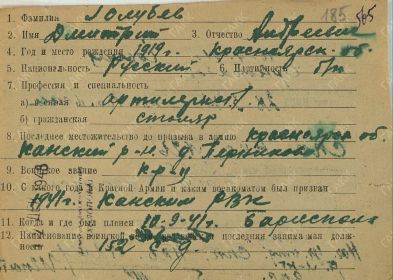 185 505
1. Фамилия Голубев
2. Имя Дмитрий 3. Отчество Андреевич
4. Год и место рождения 1919 г. Красноярск. об.
5. Национальность Русский 6. Партийность б/п
7. Профессия и специальность
а) военная артилерист
б) гражданская столяр
8. Последнее местожительство до призыва в армию Красноярск об.
Канский р-н д.
9. Воинское звание Кр-ц
10. С какого года в Красной Армии и каким военкоматом был призван
1941 г. Канский РВК
11. Когда и где был пленен 10-9-41 г. Барисполь
12. Наименование воинской последняя занимаемая долж-
ность 152